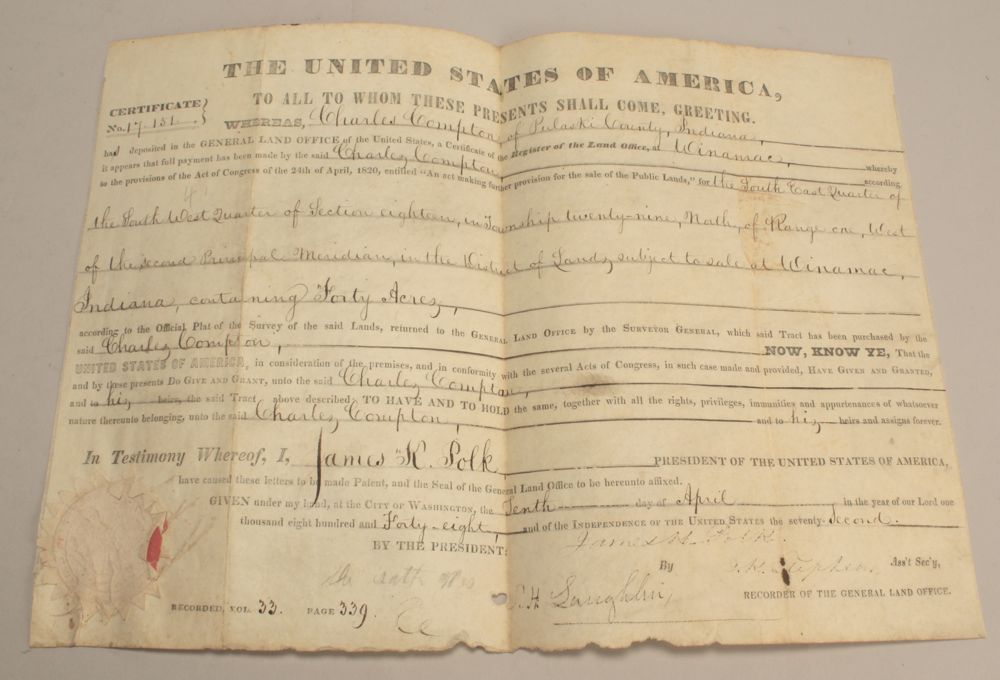 THE UNITED STATES OF AMERICA,
TO ALL TO WHOM THESE PRESENTS SHALL COME, GREETING.
CERTIFICATE
No. 17.151
WHEREAS, Charles Compton, of Pulaski County, Indiana,
had deposited in the GENERAL LAND OFFICE of the United States, a Certificate of the Register of the Land Office, at Winamac, whereby
it appears that full payment has been made by the said Charles Compton, according
to the provisions of the Act of Congress of the 24th of April, 1820, entitled "An act making further provision for the sale of the Public Lands," for the South East Quarter of
the South West Quarter of Section eighteen, in Township twenty-nine, North, of Range one, West
of the second Principal Meridian, in the District of Lands, subject to sale at Winamac,
Indiana, containing Forty Acres,
according to the Official Plat of the Survey of the said Lands, returned to the GENERAL LAND OFFICE by the SURVEYOR GENERAL, which said Tract has been purchased by the
said Charles Compton,
NOW, KNOW YE, That the
UNITED STATES OF AMERICA, in consideration of the premises, and in conformity with the several Acts of Congress, in such case made and provided, HAVE GIVEN AND GRANTED,
and by these presents DO GIVE AND GRANT, unto the said Charles Compton,
and to his heirs, the said Tract above described: TO HAVE AND TO HOLD the same, together with all the rights, privileges, immunities and appurtenances of whatsoever
nature thereunto belonging, unto the said Charles Compton, and to his heirs and assigns forever.
In Testimony Whereof, I, James K. Polk PRESIDENT OF THE UNITED STATES OF AMERICA,
have caused these letters to be made Patent, and the Seal of the General Land Office to be hereunto affixed.
GIVEN under my hand, at the CITY OF WASHINGTON, the Tenth day of April in the year of our Lord one
thousand eight hundred and Forty-eight, and of the INDEPENDENCE OF THE UNITED STATES the seventy-second.
BY THE PRESIDENT: James K. Polk.
By Ass't Sec'y,
Laughlin, RECORDER OF THE GENERAL LAND OFFICE.
RECORDED, VOL. 33. PAGE 339.